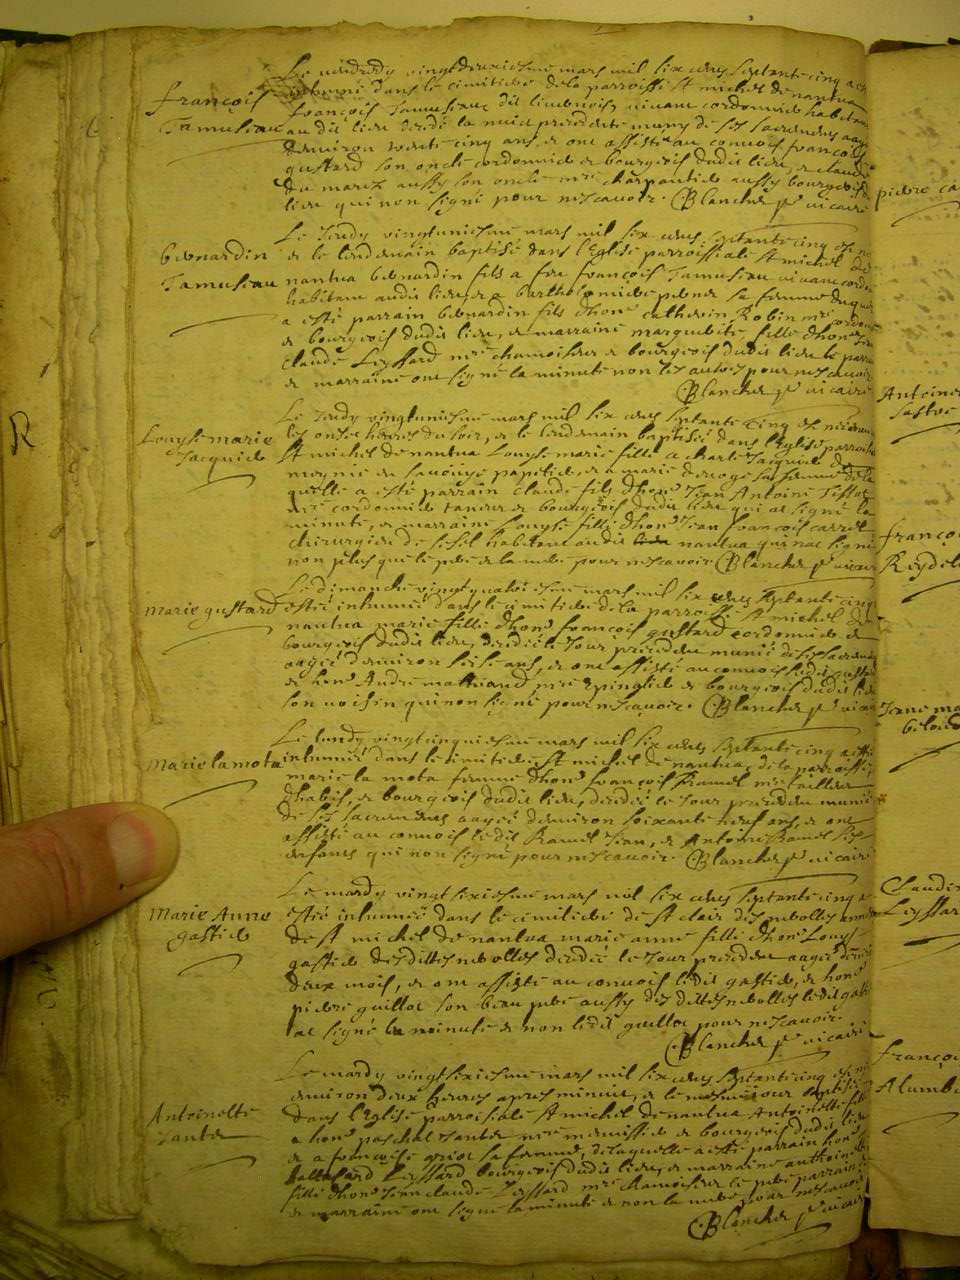 François
Tamuseau
Le vendredy vingtdeuxiesme mars mil six cens septante cinq a esté
inhumé dans le cimitiere de la parroisse st michel de nantua
françois Tamuseau dit limousin vivant cordonnier habitant
au dit lieu decedé la nuit precedente muny de ses sacremens aagé
denviron trente cinq ans, et ont assisté au convois francois
gustard son oncle cordonnier et bourgeois dudit lieu, et claude
du marez aussy son oncle mre charpantier aussy bourgeois du
lieu qui non signé pour ne scavoir. Blanchet ptre vicaire
bernardin
Tamuseau
Le Jeudy vingtuniesme mars mil six cens septante cinq est né
et le lendemain baptisé dans l'Eglise parroissiale st michel de
nantua bernardin fils a feu françois Tamuseau vivant cordonnier
habitant audit lieu, et a bartholomie sa femme duquel
a esté parrain bernardin fils dhone catherin Robin mre cordonnier
et bourgeois dudit lieu, et marraine marguerite fille dhone Jean
claude Leyssard mre chamoiseur et bourgeois dudit lieu le parrain
et marraine ont signé la minute non les autres pour ne scavoir
Blanchet ptre vicaire
Louyse marie
Jacquier
Le Jeudy vingtuniesme mars mil six cens septante cinq est née environ
les onze heures du soir, et le lendemain baptisée dans l'Eglise parroissiale
st michel de nantua Louyse marie fille a charle Jacquier de
en savoye papetier, et a marie sa femme de la
quelle a esté parrain claude fils dhone Jean Antoine
mre cordonnier tanneur et bourgeois dudit lieu qui at signé la
minute, et marraine Louyse fille dhone Jean françois carrel
chirurgien de habitant audit nantua qui nat signé
non plus que le pere de la mere pour ne scavoir Blanchet ptre vicaire
Marie gustard
Le dimanche vingtquatriesme mars mil six cens septante cinq
esté inhumée dans le cimitiere de la parroisse st michel de
nantua marie fille dhone françois gustard cordonnier et
bourgeois dudit lieu, decedée le Jour precedent munie de ses sacremens
aagée denviron seize ans, et ont assisté au convois ledit gustard
et hone André mre Epinglier et bourgeois dudit lieu
son voisin qui non signé pour ne scavoir. Blanchet ptre vicaire
Marie la mota
Le lundy vingtcinquiesme mars mil six cens septante cinq a esté
inhumée dans le cimitiere st michel de nantua, de la parroisse,
marie la mota femme dhone françois Ramel mre tailleur
dhabis, et bourgeois dudit lieu, decedée le Jour precedent munie
de ses sacremens aagée denviron soixante neuf ans, et ont
assisté au convois ledit Ramel Jean, et Antoine Ramel ses
enfans qui non signé pour ne scavoir. Blanchet ptre vicaire
Marie Anne
gastier
Le mardy vingtsixiesme mars mil six cens septante cinq a
esté inhumée dans le cimitiere de st clair des nebolles annexe
de st michel de nantua marie anne fille dhone Louys
gastier des dittes nebolles decedée le Jour precedent aagée denviron
deux mois, et ont assisté au convois ledit gastier, et hone
pierre guillot son beau pere aussy des dittes nebolles ledit gastier
at signé la minute et non ledit guillot pour ne scavoir.
Blanchet ptre vicaire
Antoinette
Jantet
Le mardy vingtsixiesme mars mil six cens septante cinq est née
environ deux heures apres minuit, et le mesme jour baptisée
dans l'Eglise parroissiale st michel de nantua Antoinette fille
a hone paschal Jantet mre menuisier et bourgeois dudit lieu
et a françoise sa femme, de laquelle a esté parrain hone
baltasard Leyssard bourgeois dudit lieu, et marraine anthoinette
fille dhone Jean claude Leyssard mre chamoiseur le pere parrain
et marraine ont signé la minute et non la mere pour ne scavoir
Blanchet ptre vicaire
pierre ca
Antoine
françoi
Reydel
Jeanne ma
Claudin
Leyssar
françoi
Alumb